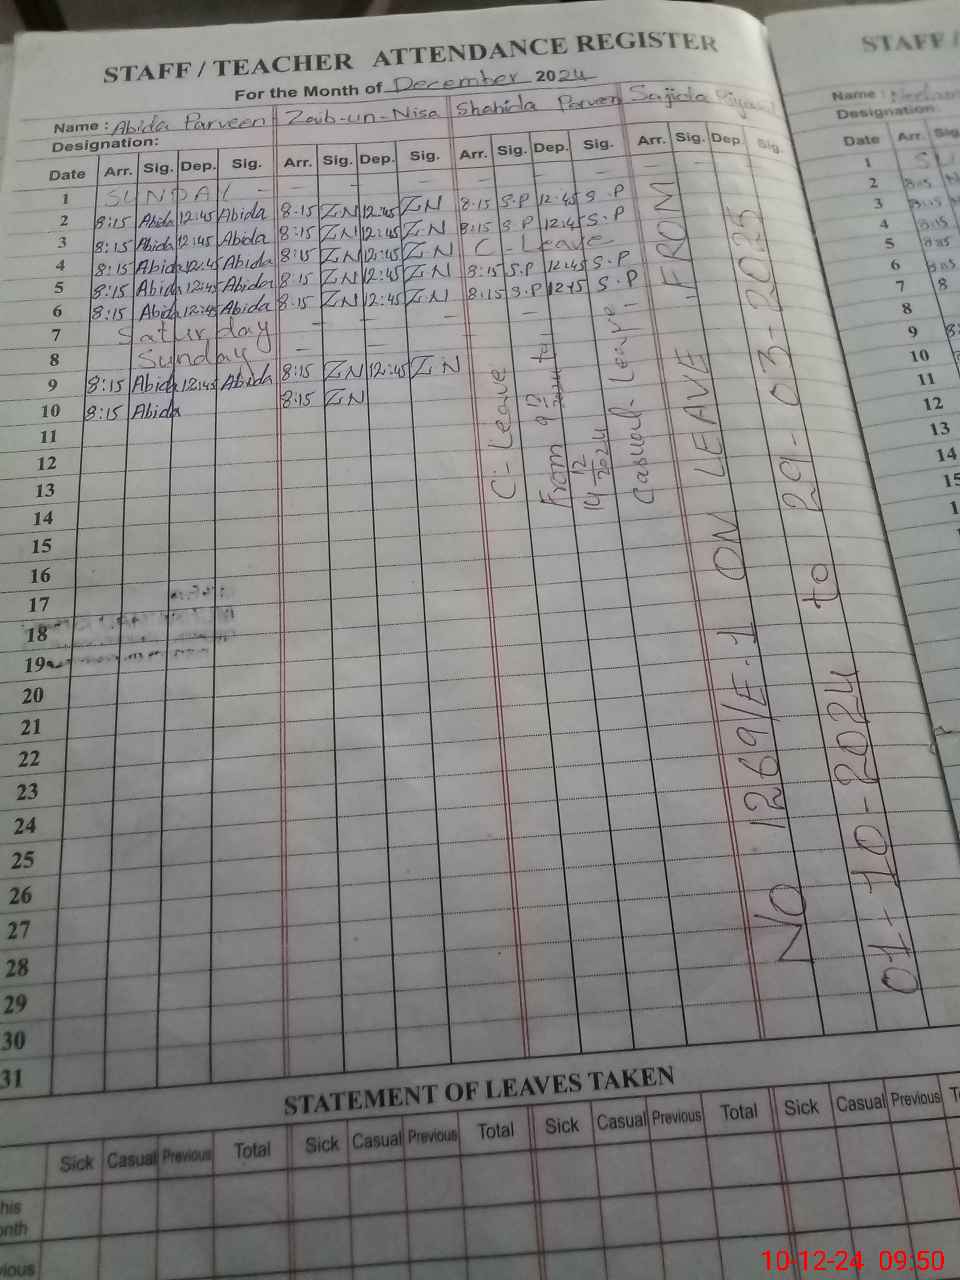 STAFF / TEACHER ATTENDANCE REGISTER
For the Month of December 2024
Name : Abida Parveen Zaib-un-Nisa Shahida Parveen Sajida
Designation:
Date Arr. Sig. Dep. Sig. Arr. Sig. Dep. Sig. Arr. Sig. Dep. Sig. Arr. Sig. Dep. Sig.
1 SUNDAY - - - - - - - - -
2 8:15 Abida 12:45 Abida 8.15 ZN 12:45 ZN 8:15 S.P 12:45 S.P
3 8:15 Abida 12:45 Abida 8:15 ZN 12:45 ZN 8:15 S.P 12:45 S.P
4 8:15 Abida 12:45 Abida 8:15 ZN 12:45 ZN C - Leave
5 8:15 Abida 12:45 Abida 8:15 ZN 12:45 ZN 8:15 S.P 12:45 S.P
6 8:15 Abida 12:45 Abida 8.15 ZN 12:45 ZN 8:15 S.P 12:45 S.P
7 Saturday - - - -
8 Sunday - -
9 8:15 Abida 12:45 Abida 8:15 ZN 12:45 ZN
10 8:15 Abida 8:15 ZN
11
12
13
14
15
16
17
18
19
20
21
22
23
24
25
26
27
28
29
30
31
C- Leave
From 9 12 2024 to
14 12 2024
Casual- Leave
No 1269/E-1 ON LEAVE FROM
01-10-2024 to 29-03-2025
STATEMENT OF LEAVES TAKEN
Sick Casual Previous Total Sick Casual Previous Total Sick Casual Previous Total Sick Casual Previous
STAFF /
Name :
Designation:
Date Arr. Sig.
1
2 8:15
3 8:15
4 8:15
5 8:15
6 8:15
7 8
8
9
10
11
12
13
14
10-12-24 09:50